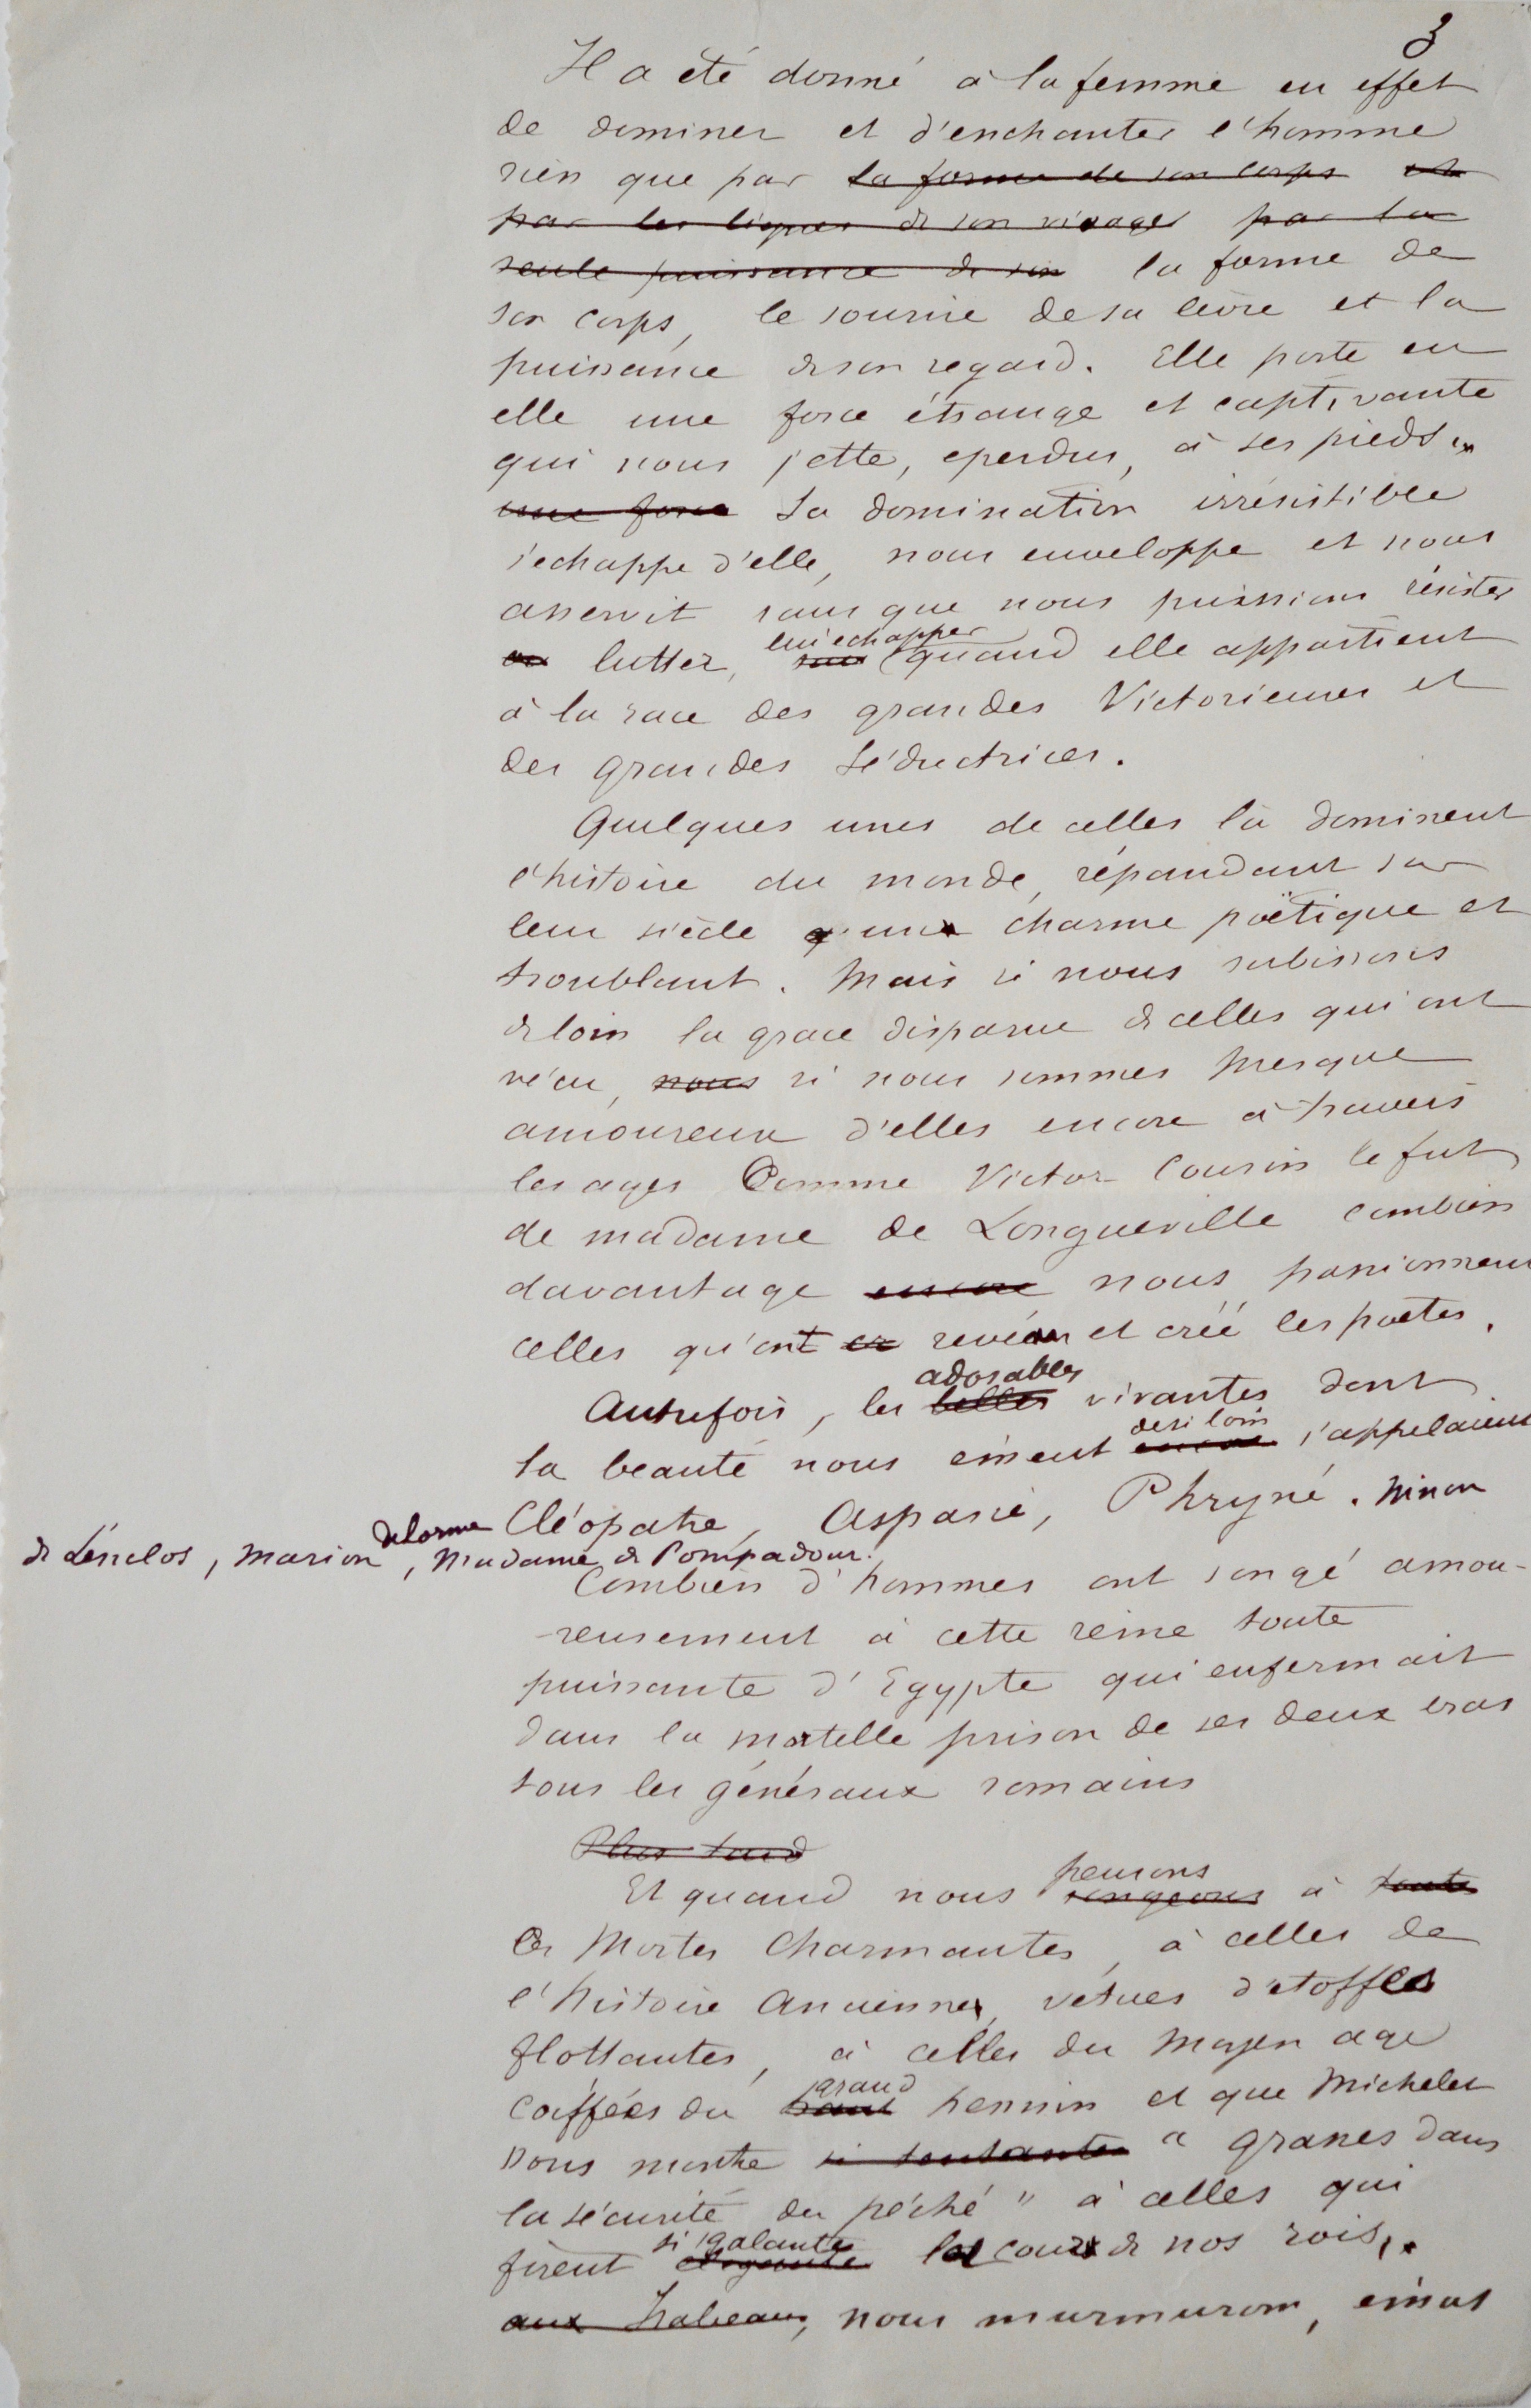 3
Il a été donné à la femme en effet
de dominer et d'enchanter l'homme
rien que par la forme de son corps et
par les lignes de son visage par la
seule puissance de son la forme de
son corps, le sourire de sa lèvre et la
puissance de son regard. Elle porte en
elle une force étrange et captivante
qui nous jette, eperdus, à ses pieds.
une force Sa domination irrésistible
s'echappe d'elle, nous enveloppe et nous
asservit sans que nous puissions résister
ou lutter, lui echapper quand elle appartient
à la race des grandes Victorieuses et
des grandes Séductrices.
Quelques unes de celles là dominent
l'histoire du monde, répandant sur
leur siècle un charme poëtique et
troublant. Mais si nous subissons
de loin la grace disparue de celles qui ont
vécu, nous si nous sommes presque
amoureux d'elles encore à travers
les ages Comme Victor Cousin le fut
de madame de Longueville combien
davantage encore nous passionnent
celles qu'ont revées et créé les poetes.
adorables
Autrefois, les belles vivantes dont
de si loin
la beauté nous émeut encore s'appelaient
Cléopatre, Aspasie, Phryné. Ninon
de Lénclos, Marion delorme, Madame de Pompadour.
Combien d'hommes ont songé amou-
-reusement à cette reine toute
puissante d'Egypte qui enfermait
dans la mortelle prison de ses deux bras
tous les généraux romains
Plus tard
pensons
Et quand nous songeons à toutes
Ces Mortes Charmantes, à celles de
l'histoire Ancienne, vetues d'etoffes
flottantes, à celles du Moyen age
grand
coiffées du haut hennin et que Michelet
nous montre si tentantes " graves dans
la sécurité du péché " à celles qui
si galante
firent la cour de nos rois,
aux Isabeau, nous murmurons, émus